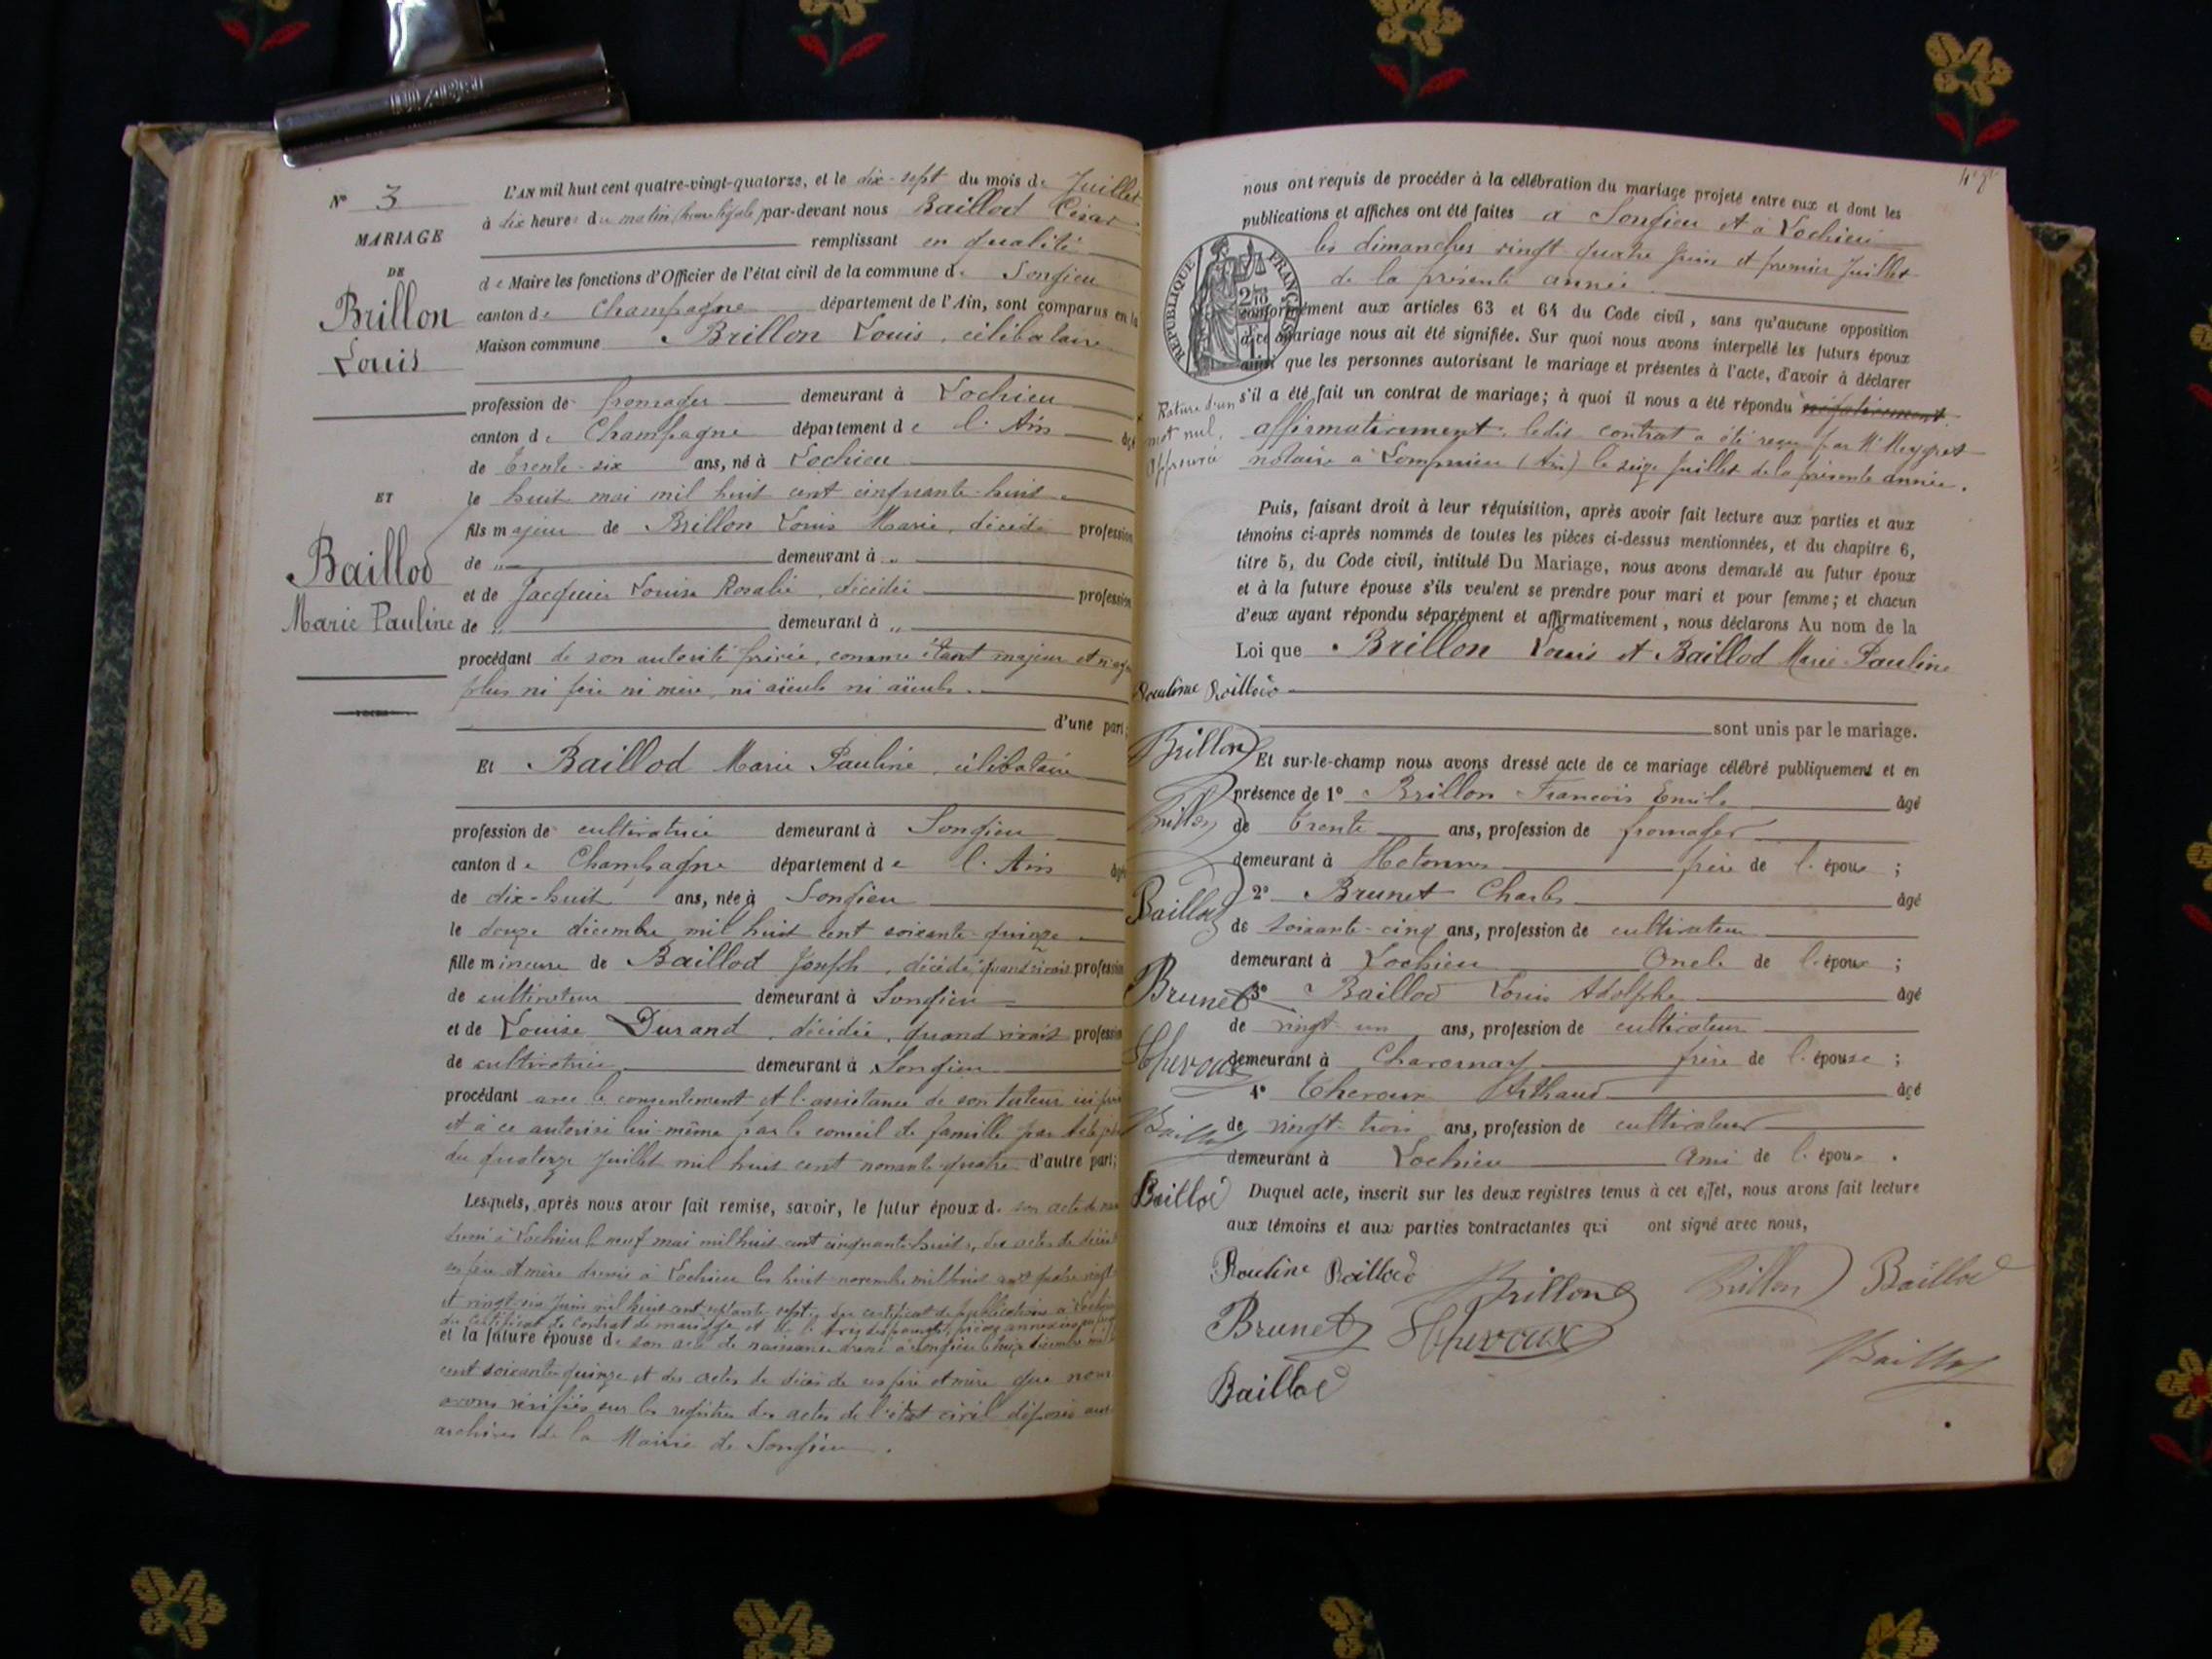 N° 3
MARIAGE
DE
Brillon
Louis
ET
Baillod
Marie Pauline
L'AN mil huit cent quatre-vingt-quatorze, et le dix-sept du mois de Juillet
à dix heures du matin (heure légale) par-devant nous Baillod César
remplissant en qualité
de Maire les fonctions d'Officier de l'état civil de la commune de Songieu
canton de Champagne département de l'Ain, sont comparus en la
Maison commune Brillon Louis, célibataire
profession de fromager demeurant à Lochieu
canton de Champagne département de l'Ain âgé
de trente-six ans, né à Lochieu
le huit mai mil huit cent cinquante-huit
fils majeur de Brillon Louis Marie, décédé profession
de " demeurant à "
et de Jacquier Louise Rosalie, décédée profession
de " demeurant à "
procédant de son autorité privée, comme étant majeur et n'ayant
plus ni père ni mère, ni aïeuls ni aïeules.
d'une part;
Et Baillod Marie Pauline, célibataire
profession de cultivatrice demeurant à Songieu
canton de Champagne département de l'Ain âgée
de dix-huit ans, née à Songieu
le douze décembre mil huit cent soixante-quinze
fille mineure de Baillod Joseph, décédé, quand vivait profession
de cultivateur demeurant à Songieu
et de Louise Durand, décédée, quand vivait profession
de cultivatrice demeurant à Songieu
procédant avec le consentement et l'assistance de son tuteur ici
et à ce autorisé lui-même par le conseil de famille par
du quatorze Juillet mil huit cent nonante-quatre d'autre part;
Lesquels, après nous avoir fait remise, savoir, le futur époux de son acte de
dressé à Lochieu le neuf mai mil huit cent cinquante-huit, des actes de décès
ses père et mère dressés à Lochieu les huit novembre mil huit cent quatre vingt
et vingt-six Juin mil huit cent septante sept, du certificat de publications à Lochieu
du certificat de contrat de mariage et
et la future épouse de son acte de naissance dressé à Songieu le treize décembre mil
cent soixante-quinze et des actes de décès de ses père et mère que nous
avons vérifiés sur les registres des actes de l'état civil déposés aux
archives de la Mairie de Songieu.
nous ont requis de procéder à la célébration du mariage projeté entre eux et dont les
publications et affiches ont été faites à Songieu et à Lochieu
les dimanches vingt-quatre Juin et premier Juillet
de la présente année
RÉPUBLIQUE FRANÇAISE
conformément aux articles 63 et 64 du Code civil, sans qu'aucune opposition
à ce mariage nous ait été signifiée. Sur quoi nous avons interpellé les futurs époux
ainsi que les personnes autorisant le mariage et présentes à l'acte, d'avoir à déclarer
s'il a été fait un contrat de mariage; à quoi il nous a été répondu négativement
Rature d'un
mot nul.
Approuvée
affirmativement. ledit contrat a été reçu par Me Meygret
notaire à Lompnieu (Ain) le seize Juillet de la présente année.
Puis, faisant droit à leur réquisition, après avoir fait lecture aux parties et aux
témoins ci-après nommés de toutes les pièces ci-dessus mentionnées, et du chapitre 6,
titre 5, du Code civil, intitulé Du Mariage, nous avons demandé au futur époux
et à la future épouse s'ils veulent se prendre pour mari et pour femme; et chacun
d'eux ayant répondu séparément et affirmativement, nous déclarons Au nom de la
Loi que Brillon Louis et Baillod Marie Pauline
Pauline Baillod
sont unis par le mariage.
Brillon
Et sur-le-champ nous avons dressé acte de ce mariage célébré publiquement et en
présence de 1° Brillon François Emile âgé
Brillon
de trente ans, profession de fromager
demeurant à Hotonnes frère de l'époux ;
Baillod
2° Brunet Charles âgé
de soixante-cinq ans, profession de cultivateur
demeurant à Lochieu Oncle de l'époux ;
Brunet
3° Baillod Louis Adolphe âgé
de vingt-un ans, profession de cultivateur
Chevaux
demeurant à Chavornay frère de l'épouse ;
4° Arthaud âgé
Baillod
de vingt-trois ans, profession de cultivateur
demeurant à Lochieu Ami de l'époux .
Baillod
Duquel acte, inscrit sur les deux registres tenus à cet effet, nous avons fait lecture
aux témoins et aux parties contractantes qui ont signé avec nous,
Pauline Baillod Brillon Brillon Baillod
Brunet Baillod
Baillod